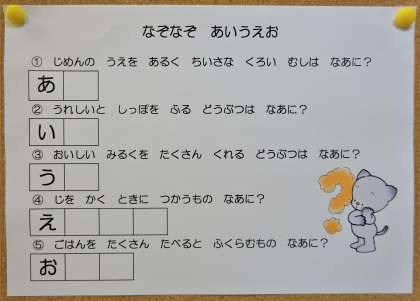 なぞなぞ　あいうえお
① じめんの　うえを　あるく　ちいさな　くろい　むしは　なあに？
あ
② うれしいと　しっぽを　ふる　どうぶつは　なあに？
い
③ おいしい　みるくを　たくさん　くれる　どうぶつは　なあに？
う
④ じを　かく　ときに　つかうもの　なあに？
え
⑤ ごはんを　たくさん　たべると　ふくらむもの　なあに？
お